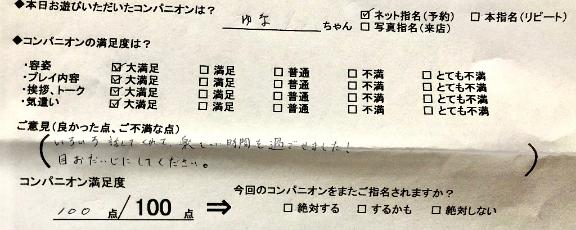 ◆本日お遊びいただいたコンパニオンは？ ゆな ちゃん ☑ネット指名(予約) □本指名(リピート)
□写真指名(来店)
◆コンパニオンの満足度は？
・容姿 ☑大満足 □満足 □普通 □不満 □とても不満
・プレイ内容 ☑大満足 □満足 □普通 □不満 □とても不満
・挨拶、トーク ☑大満足 □満足 □普通 □不満 □とても不満
・気遣い ☑大満足 □満足 □普通 □不満 □とても不満
ご意見(良かった点、ご不満な点)
(いろいろ話してくれて、楽しい時間を過ごせました!
目おだいじにしてください。)
コンパニオン満足度 今回のコンパニオンをまたご指名されますか？
100 点/100 点 ⇒ □絶対する □するかも □絶対しない